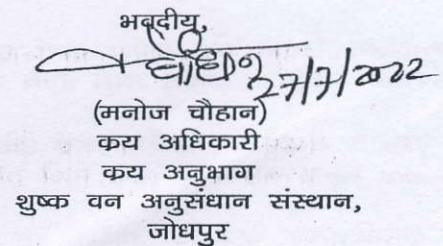 भवदीय,
चौहान 27/7/2022
(मनोज चौहान)
कय अधिकारी
कय अनुभाग
शुष्क वन अनुसंधान संस्थान,
जोधपुर